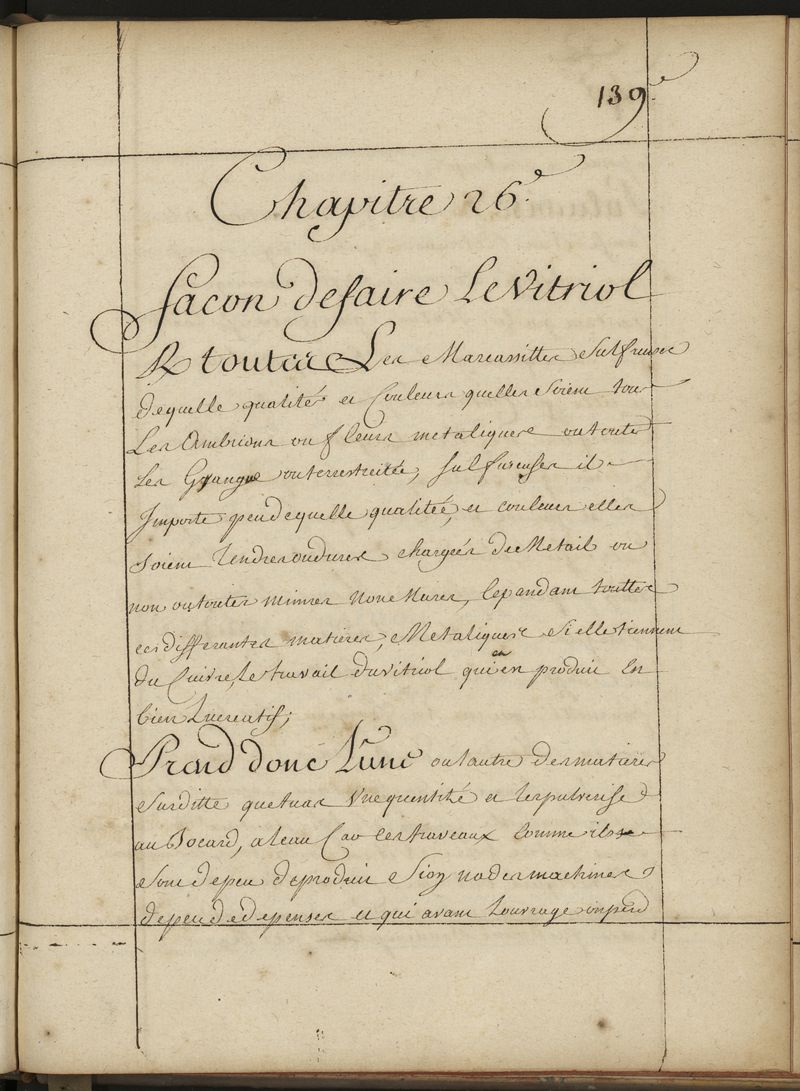 139.e
Chapitre 26.e
façon defaire Le Vitriol
R toutes Les Marcassittes Sulfreuses
dequelle qualités et Couleurs quelles Soient tous
Les Ambrions ou fleurs metaliquere ou toutes
Les Grangue outerrestreitée, sulfureuses il
Importe peu dequelle qualiteé, et couleurs elles
Soient Tendres oudures chargées du Metail ou
non ou toutes minnes Non Mures, Cependant touttes
ces differantes matieres, Metaliquere Si elle tiennent
du Cuivre, Le travail du vitriol qui en produit En
bien Lucratif;
Prend donc L'une ou l'autre des matieres
Surditte que tu as Une quentité et les pulverise
au Bocard, a leau Car Ces travaux Comme ils
Sont de peu de produit Sion na des machines
depeu de depenses et qui avant Louvrage on perd